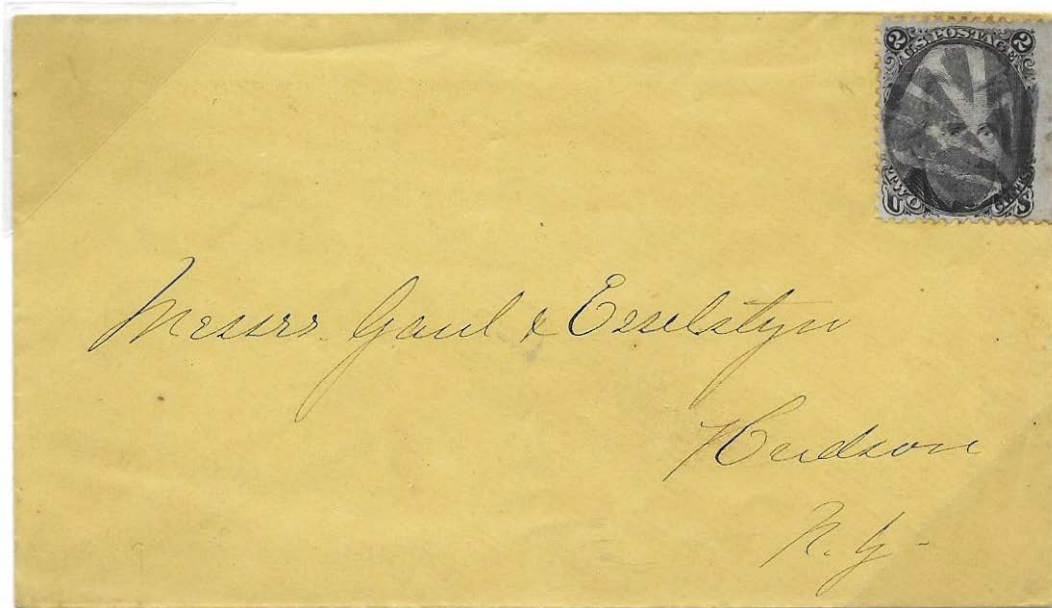 2 U.S. POSTAGE 2
TWO CENTS
U S
Messrs. Gaul & Esselstyn
Hudson
N.Y.